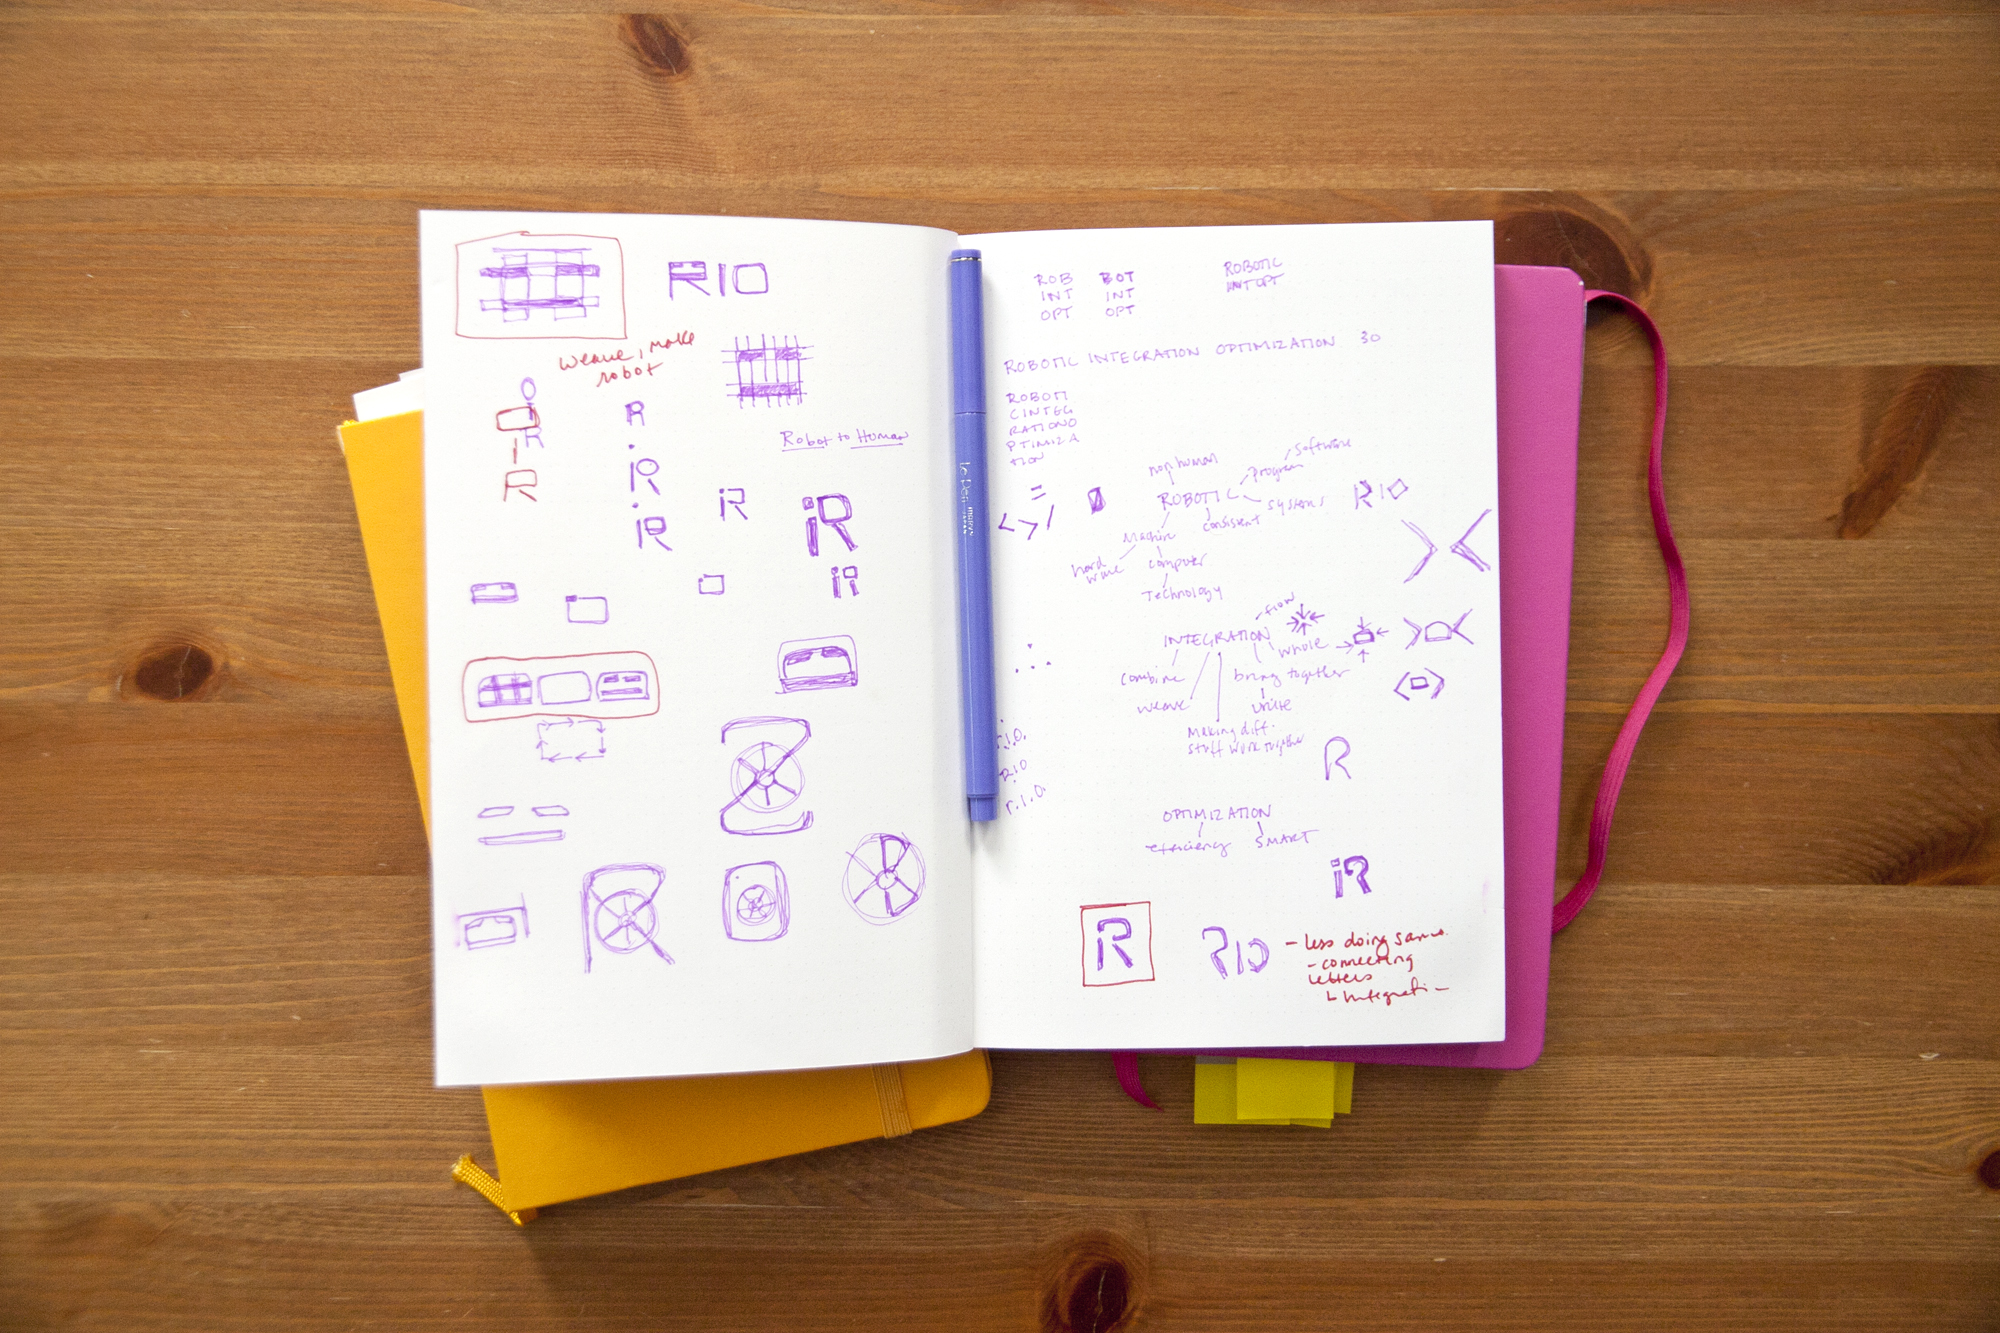 RIO
weave, make
robot
R
Robot to Human
R
R
iR
iR
iR
iR
R
Le Pen
ROB BOT ROBOTIC
INT INT INT OPT
OPT OPT
ROBOTIC INTEGRATION OPTIMIZATION 30
ROBOTI
CINTEG
RATIONO
PTIMIZA
TION
non human
software
program
ROBOTIC
systems
consistent
RIO
Machine
hard
ware
computer
Technology
flow
INTEGRATION
whole
combine
bring together
weave
unite
Making diff.
stuff work together
r.i.o.
RIO
r.i.o.
R
OPTIMIZATION
efficiency SMART
iR
iR
RIO
- less doing same
- connecting
letters